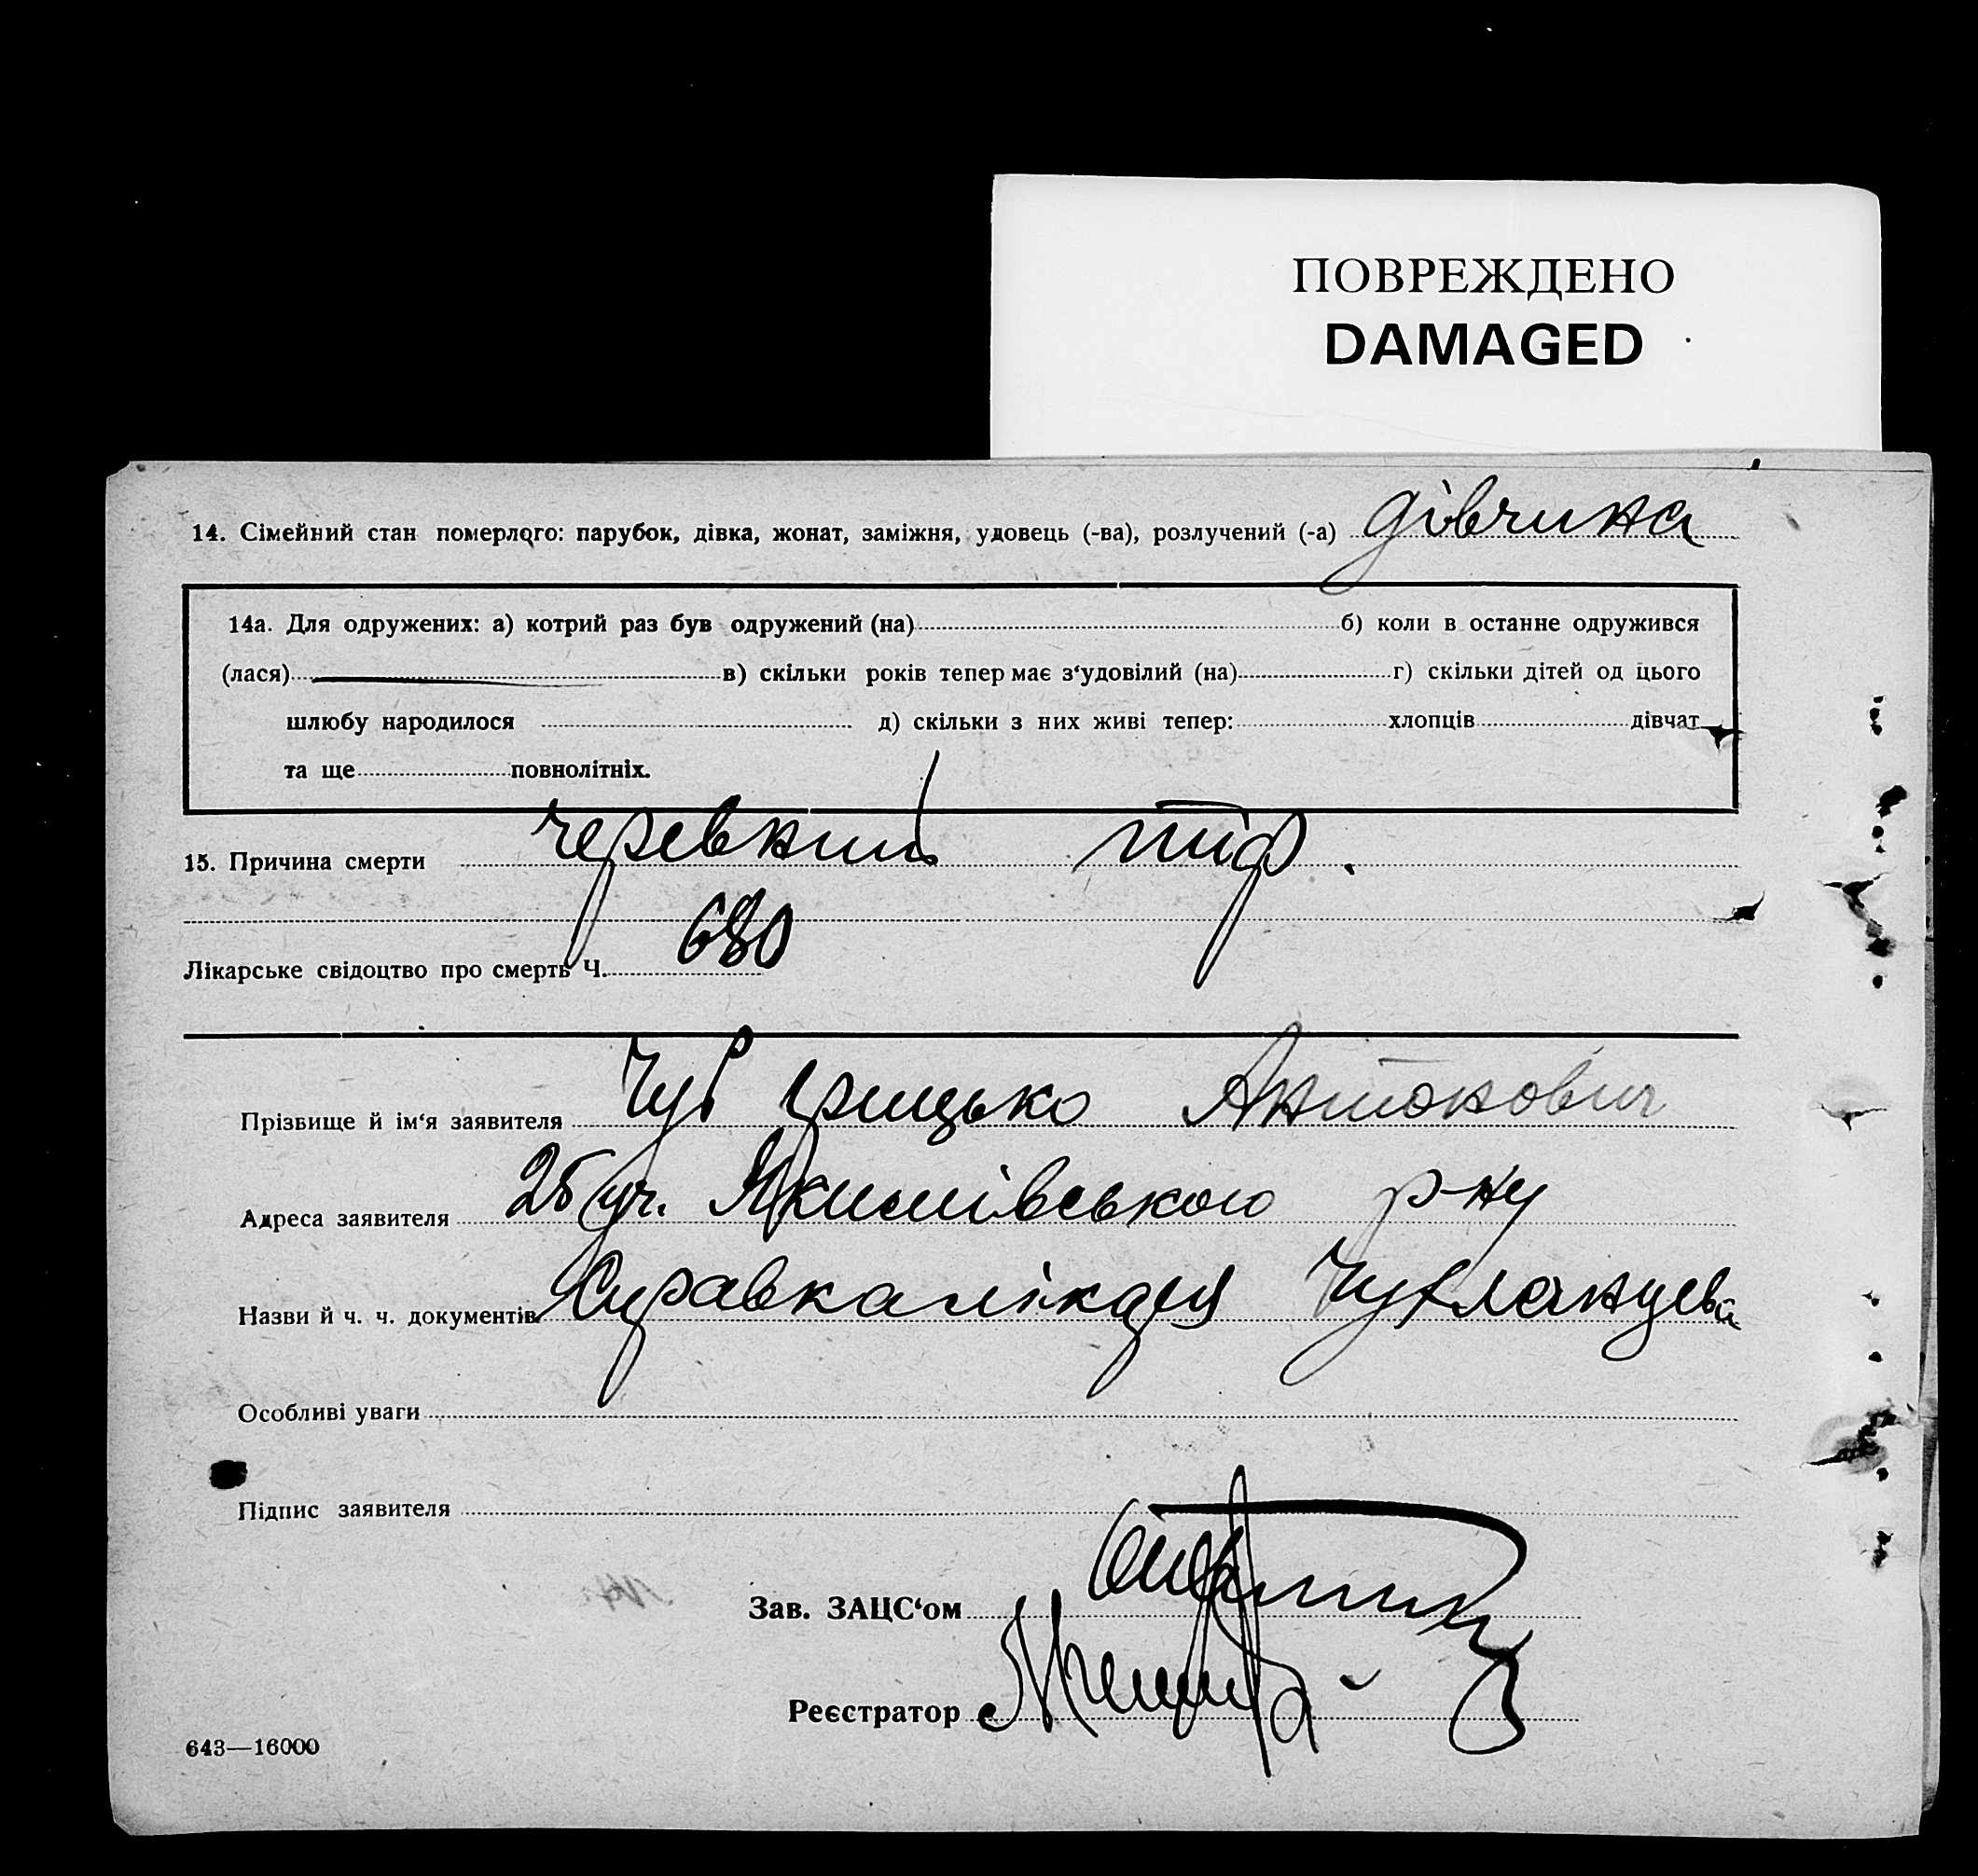 ПОВРЕЖДЕНО
DAMAGED
14. Сімейний стан померлого: парубок, дівка, жонат, заміжня, удовець (-ва), розлучений (-а) дівчина
14а. Для одружених: а) котрий раз був одружений (на) б) коли в останне одружився
(лася) в) скільки років тепер має з‘удовілий (на) г) скільки дітей од цього
шлюбу народилося д) скільки з них живі тепер: хлопців дівчат
та ще повнолітніх.
15. Причина смерти черевний тиф.
Лікарське свідоцтво про смерть Ч. 680
Прізвище й ім‘я заявителя Чуб Грицько Антонович
Адреса заявителя 25 уч. Якимівського р-ну
Назви й ч. ч. документів Справка лікаря
Особливі уваги
Підпис заявителя
Зав. ЗАЦС‘ом
Реєстратор
643—16000